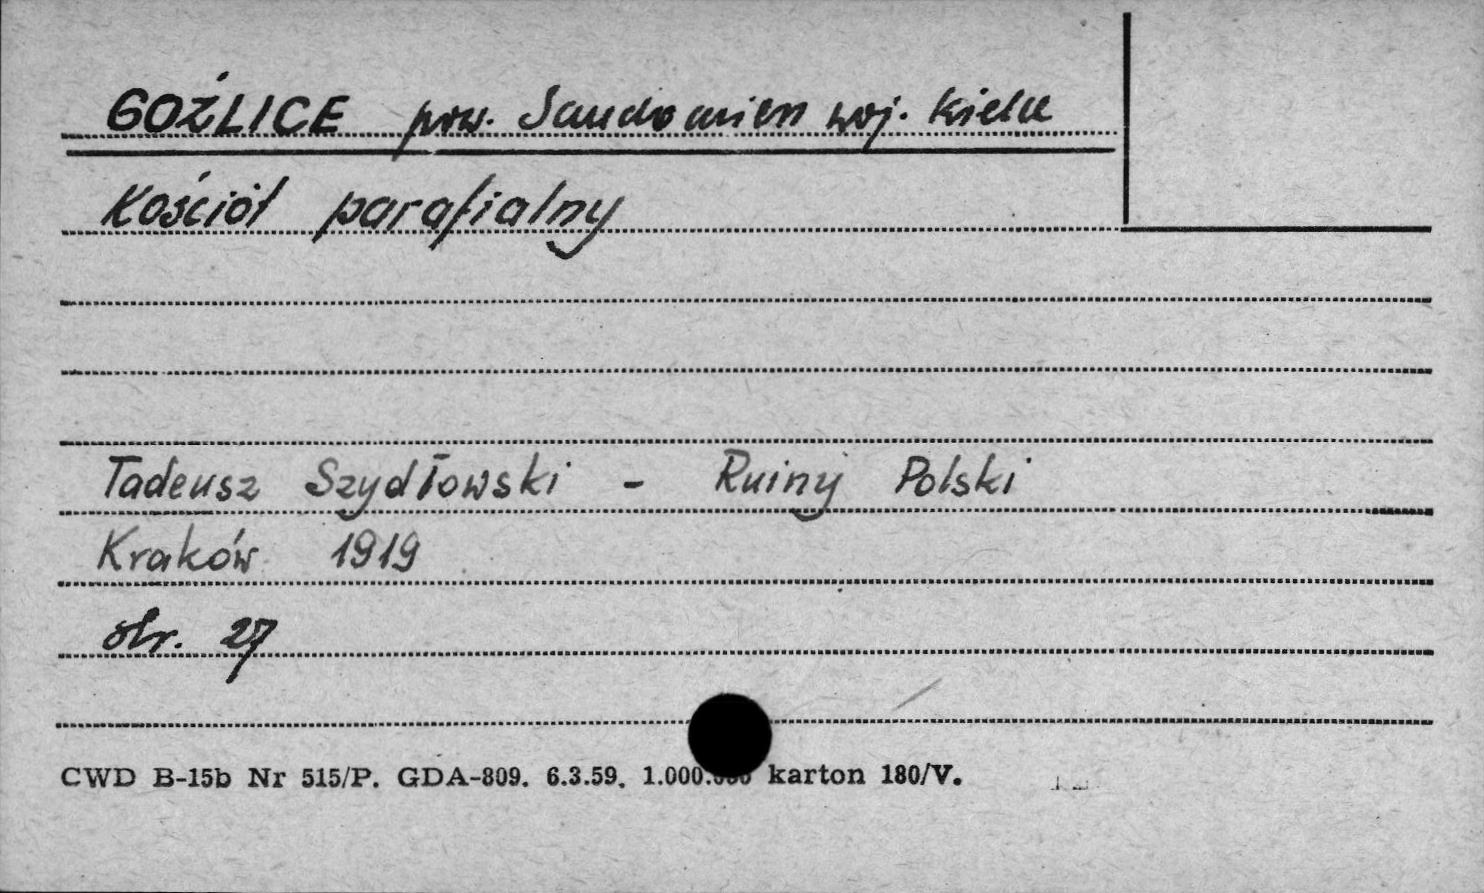 GOŹLICE pow. Sandomierz woj. Kielce
Kościół parafialny
Tadeusz Szydłowski - Ruiny Polski
Kraków 1919
str. 27
CWD B-15b Nr 515/P. GDA-809. 6.3.59. 1.000.000 karton 180/V.